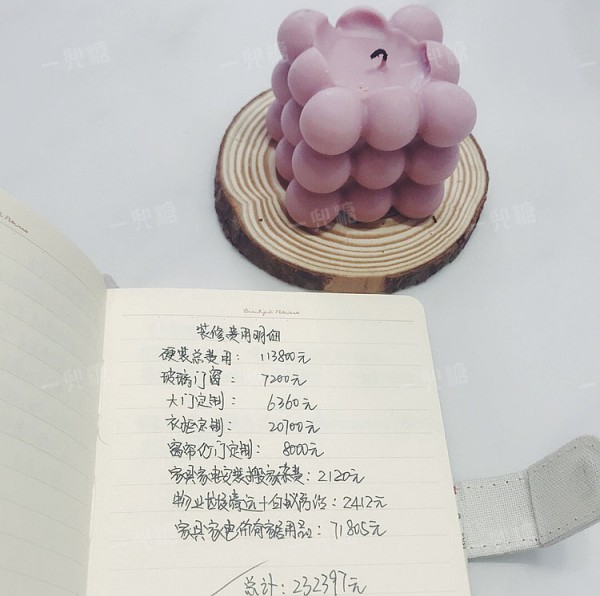 一兜糖
装修费用明细
硬装总费用: 113800元
玻璃门窗: 7200元
大门定制: 6360元
衣柜定制: 20700元
窗帘 门定制: 8000元
家具家电安装搬家杂费: 2120元
物业垃圾清运+白蚁防治: 2412元
家具家电 家居用品: 71805元
总计: 232397元